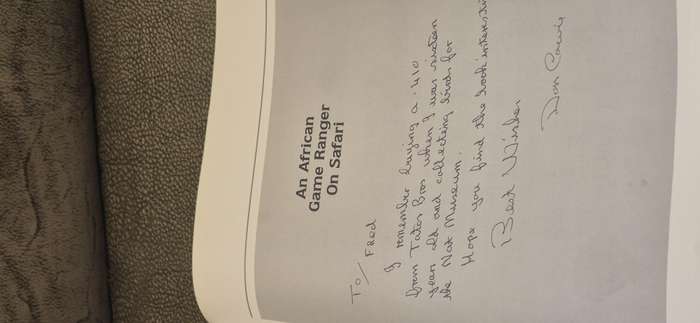 An African
Game Ranger
On Safari
To/ Fred
I remember buying a .410
from Tatos Bros when I was sixteen
years old and collecting birds for
the Nat Museum.
Hope you find the book interesting
Best Wishes
Don